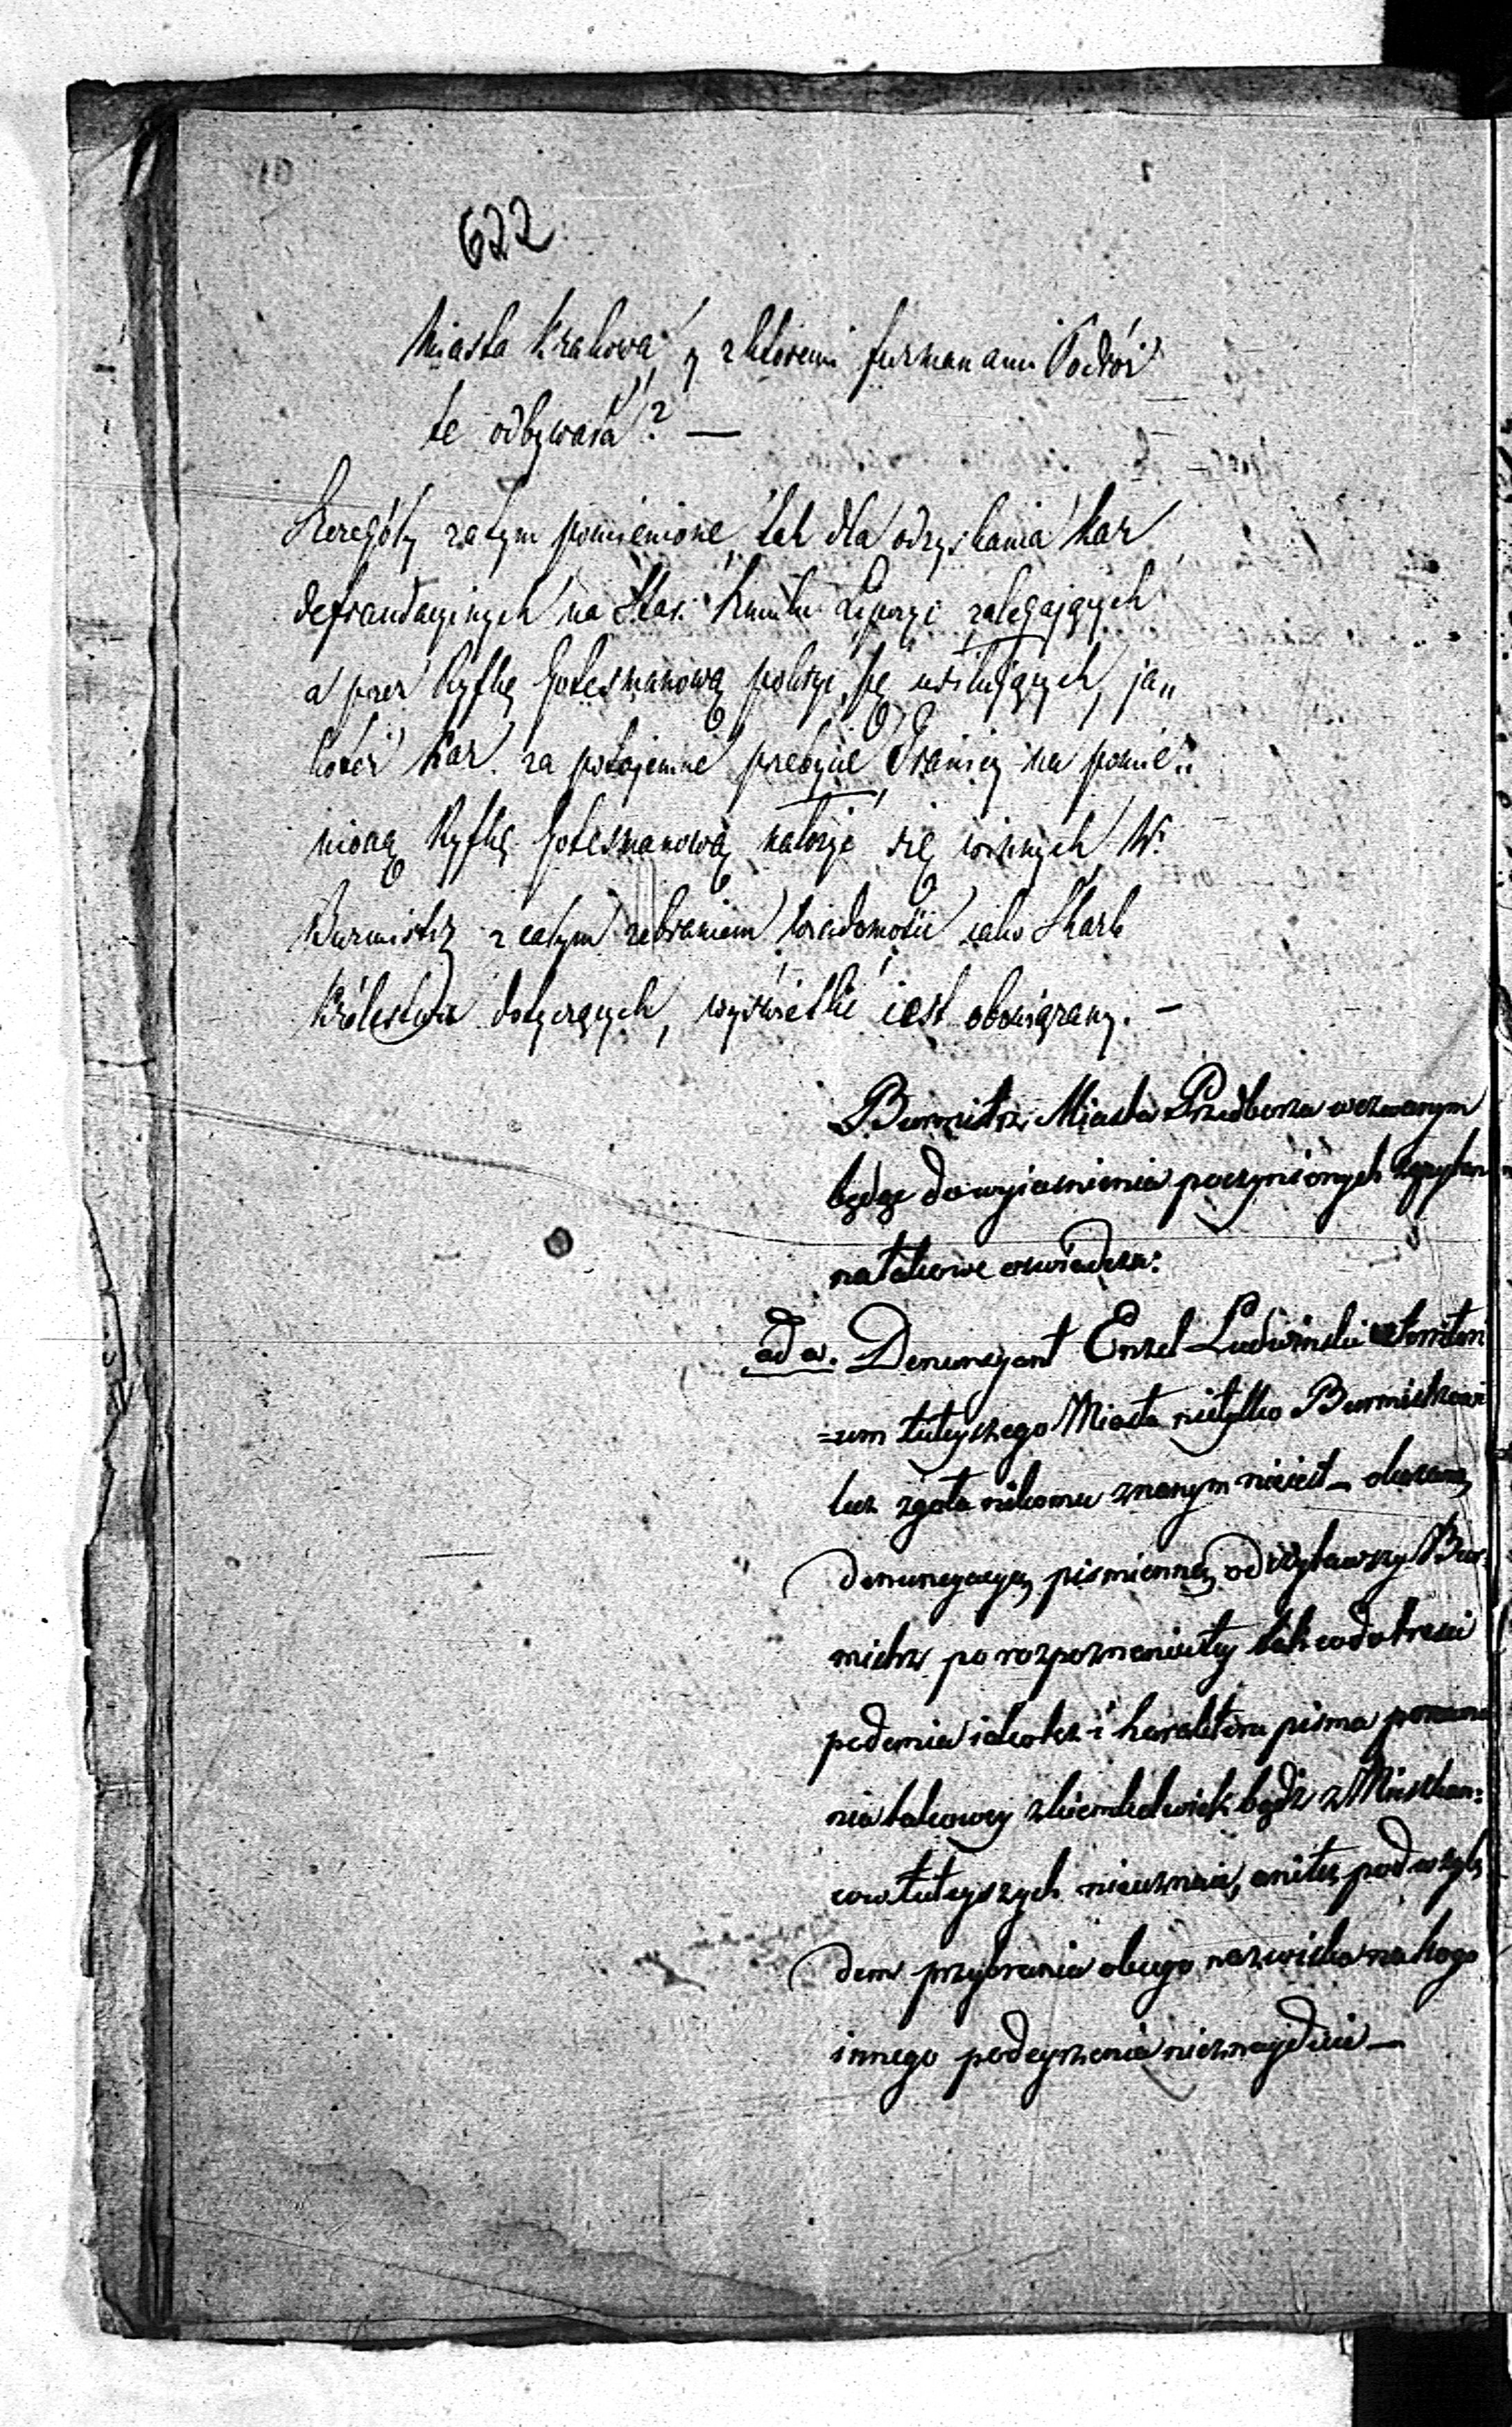 622
Miasta Krakowa, y z któremi furmanami Podróż
te odbywała? —
Szczegóły zatym pomienione, tak dla odzyskania kar
defraudacyinych na Star. Leyzorze zalegaiących
a przez Ryfkę Gotesmanową pokryć się usiłuiących, ja„
koteż kar za potajemne przebycie Granicy na pomie„
nioną Ryfkę Gotesmanową nałożyć się winnych W.
Burmistrz z całym zebraniem wiadomości iako Skarb
Królestwa dotyczących, wyświetlić iest obowiązany. —
Burmistrz Miasta Przedborza wezwanym
będąc do wyiaśnienia poczynionych zapytań
natakowe oświadcza:
ad a. Denuncyant Enzel Ludwinski w Territori
=um tuteyszego Miasta nietylko Burmistrzowi
lecz zgoła nikomu znanym nieiest — okazaną
denuncyacyą pismienną odczytawszy Bur:
mistrz po rozpoznaniu tey tak co do treści
podania iakotez i harakteru pisma
nia takowey zkiemkolwiek bądź z Mieszkań:
cow tuteyszych nieuznaie, anitez pod wzglę
dem przybrania obcego nazwiska na kogo
innego podeyrzenia nieznayduie —